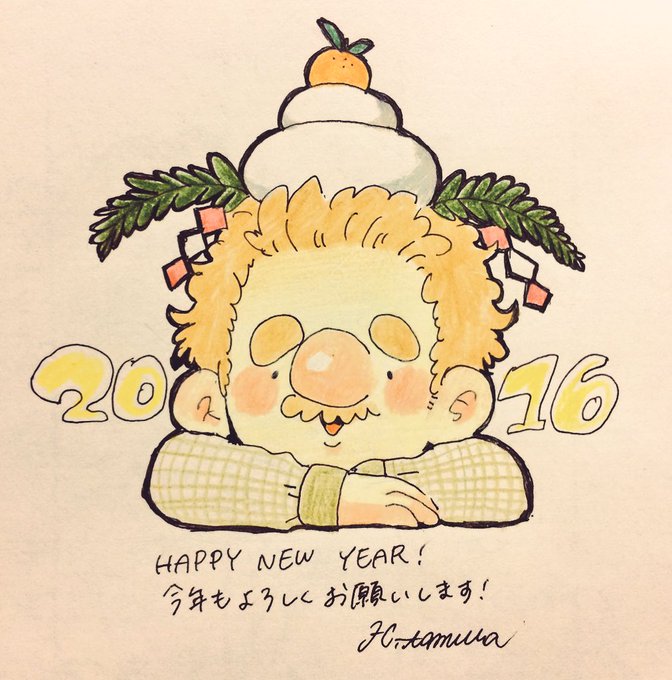 2016
HAPPY NEW YEAR!
今年もよろしくお願いします!